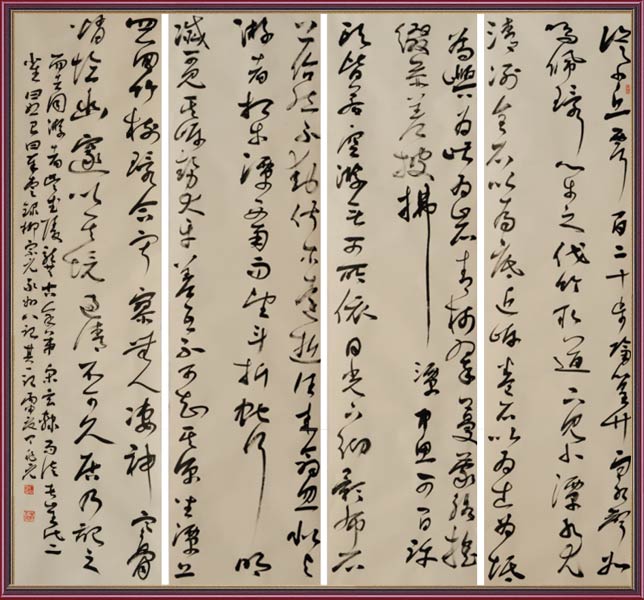 從小丘西行百二十步隔篁竹聞水聲如
鳴佩環心樂之伐竹取道下見小潭水尤
清冽全石以為底近岸卷石以出為坻
為嶼為嵁為岩青樹翠蔓蒙絡搖
綴參差披拂潭中魚可百許
頭皆若空游無所依日光下徹影布石
上佁然不動俶爾遠逝往來翕忽似與
游者相樂潭西南而望斗折蛇行明
滅可見其岸勢犬牙差互不可知其源坐潭上
四面竹樹環合寂寥無人淒神寒骨
悄愴幽邃以其境過清不可久居乃記之
而去同游者吳武陵龔古余弟宗玄隸而從者崔氏二
生曰恕己曰奉壹錄柳宗元永州八記其一